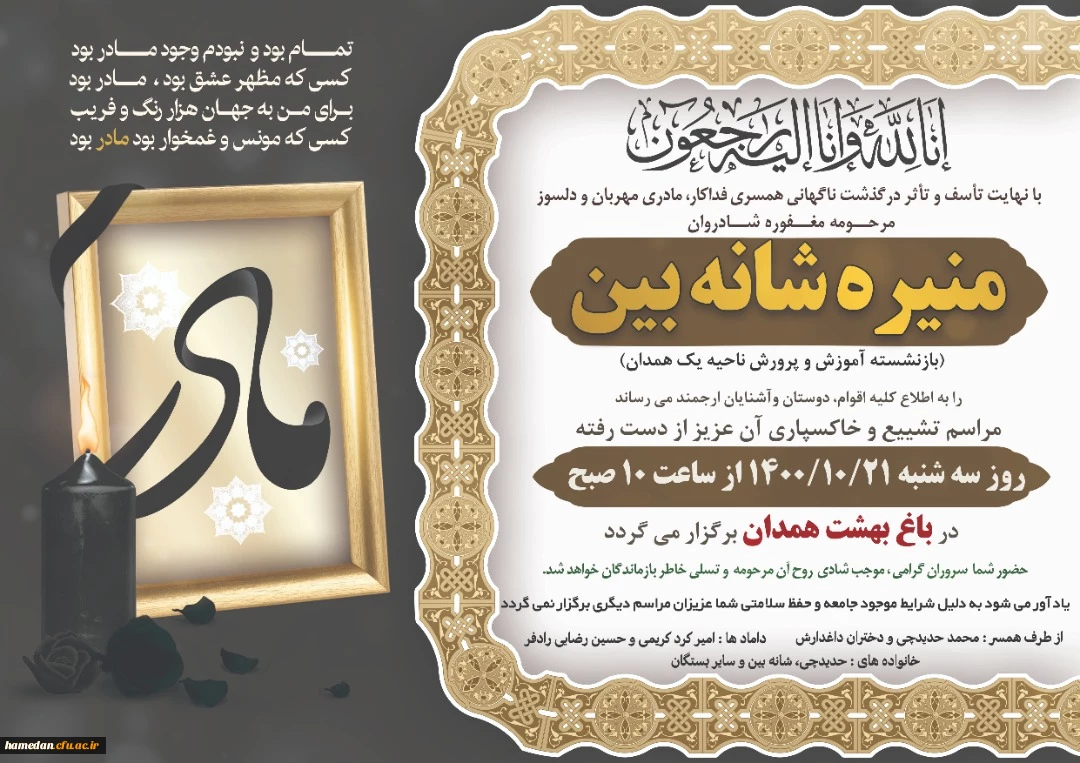 انا لله وانا الیه راجعون
با نهایت تأسف و تأثر درگذشت ناگهانی همسری فداکار، مادری مهربان و دلسوز
مرحومه مغفوره شادروان
منیره شانه بین
(بازنشسته آموزش و پرورش ناحیه یک همدان)
را به اطلاع کلیه اقوام، دوستان وآشنایان ارجمند می رساند
مراسم تشییع و خاکسپاری آن عزیز از دست رفته
روز سه شنبه ۱۴۰۰/۱۰/۲۱ از ساعت ۱۰ صبح
در باغ بهشت همدان برگزار می گردد
حضور شما سروران گرامی، موجب شادی روح آن مرحومه و تسلی خاطر بازماندگان خواهد شد.
یادآور می شود به دلیل شرایط موجود جامعه و حفظ سلامتی شما عزیزان مراسم دیگری برگزار نمی گردد
از طرف همسر : محمد حدیدچی و دختران داغدارش داماد ها : امیر کرد کریمی و حسین رضایی رادفر
خانواده های : حدیدچی، شانه بین و سایر بستگان
تمام بود و نبودم وجود مادر بود
کسی که مظهر عشق بود ، مادر بود
برای من به جهان هزار رنگ و فریب
کسی که مونس و غمخوار بود مادر بود
مادر
hamedan.cfu.ac.ir